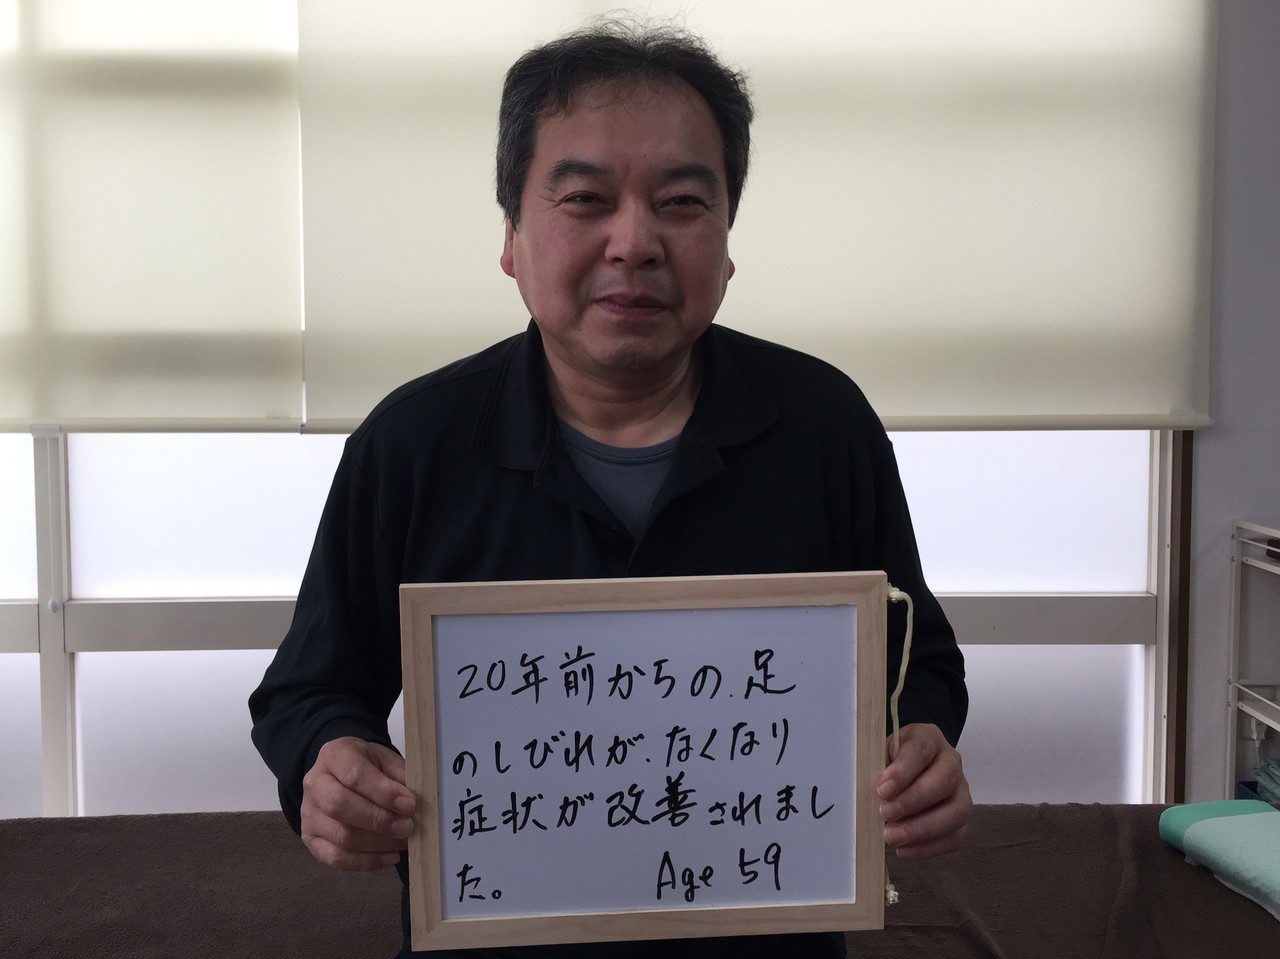 20年前からの、足
のしびれが、なくなり
症状が改善されまし
た。 Age 59